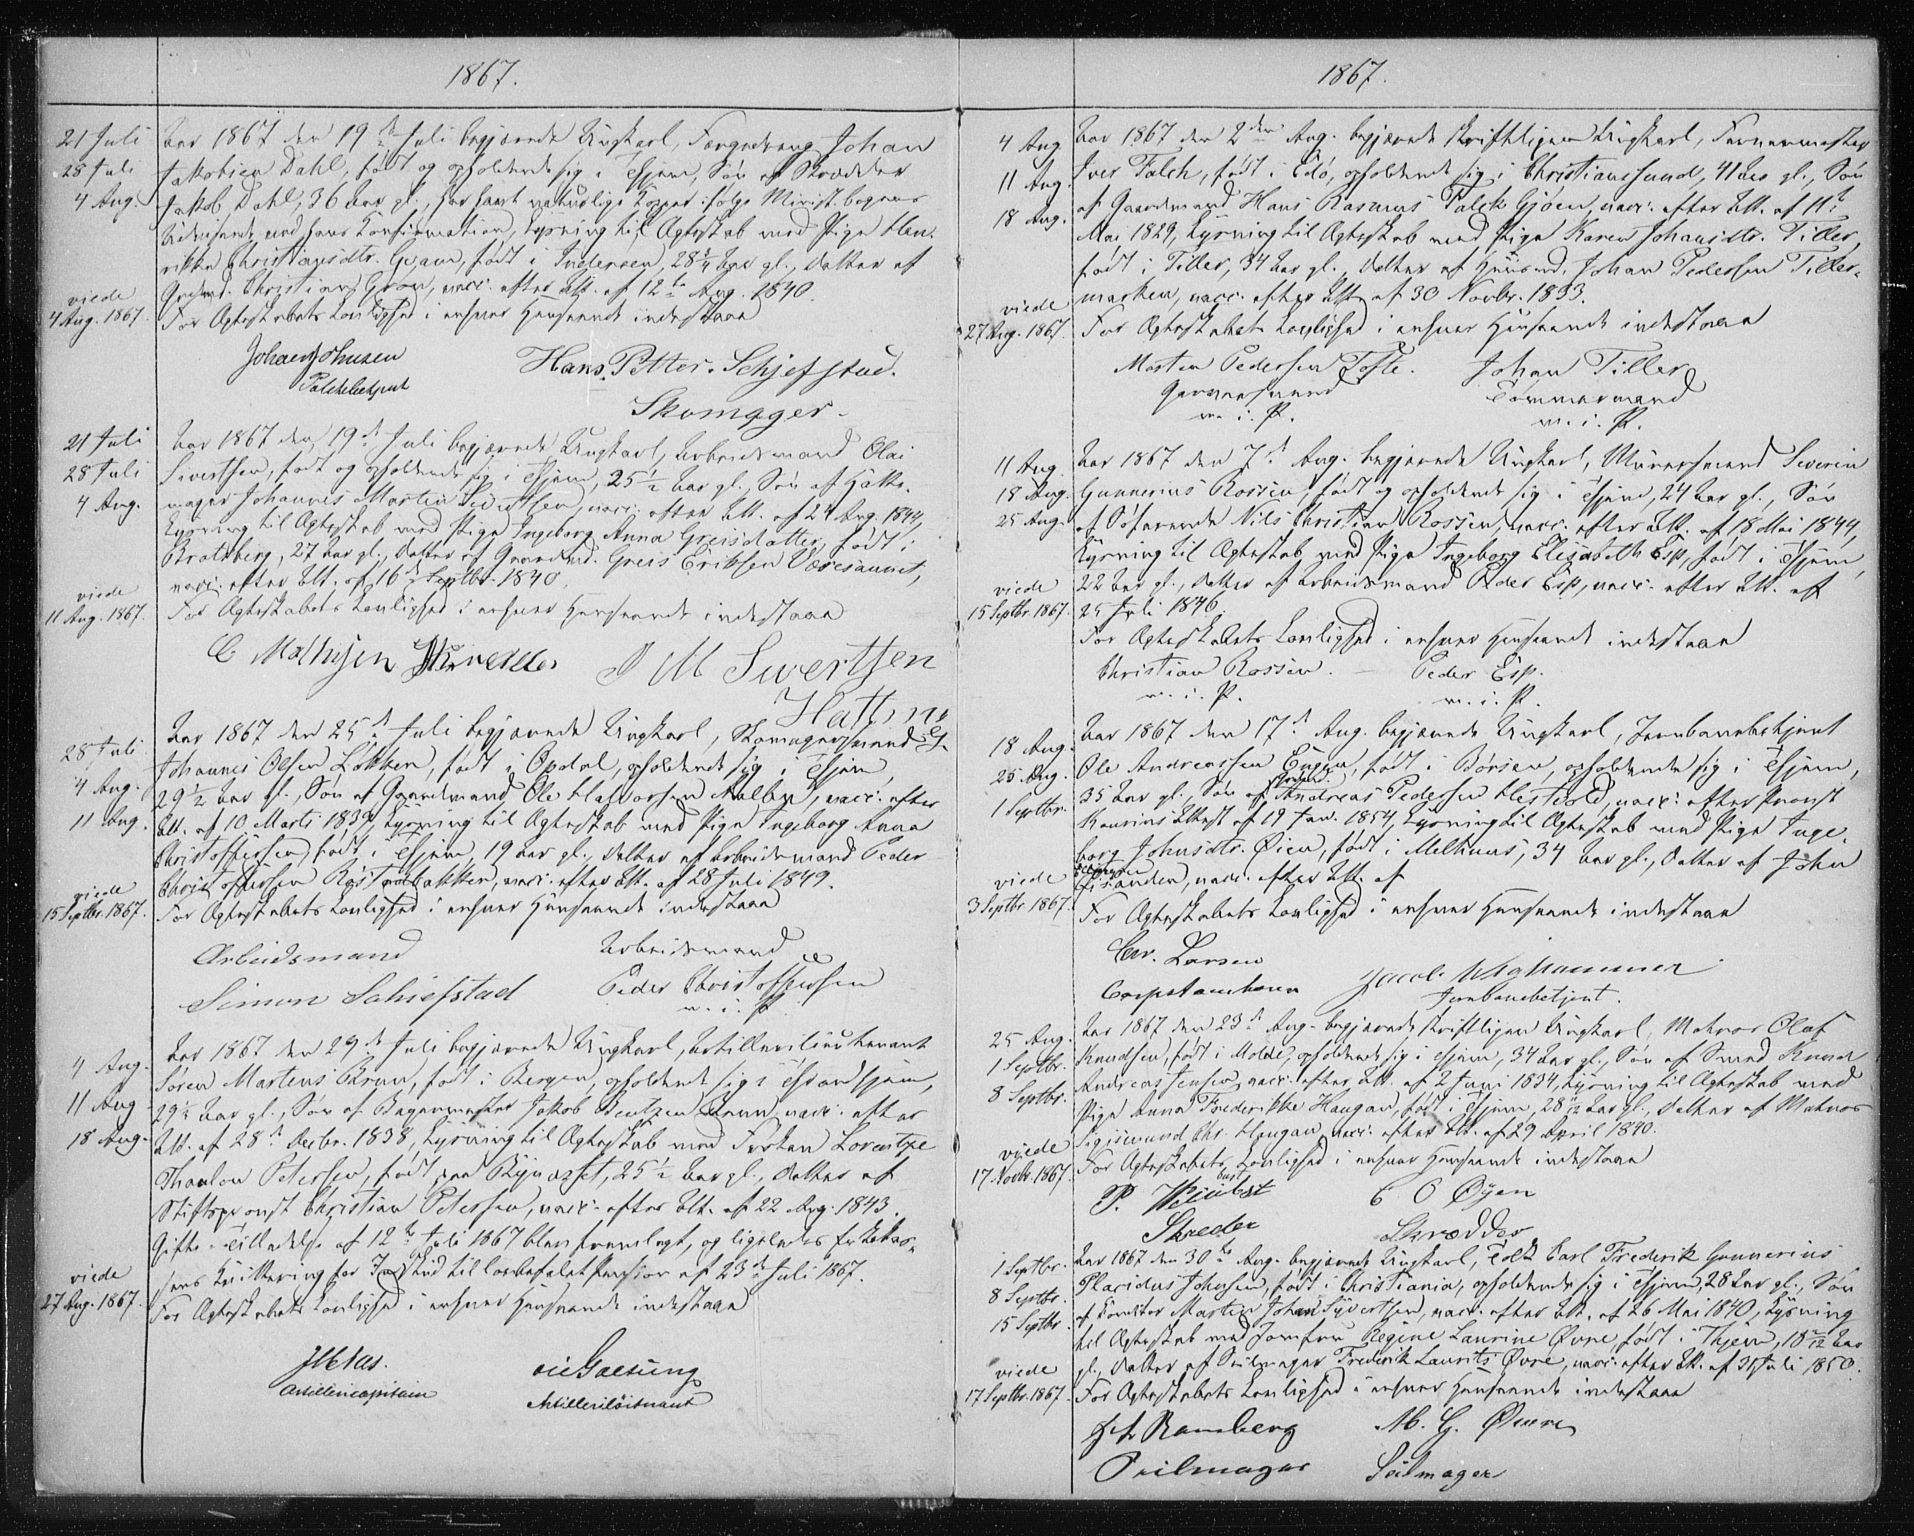 1867.
21 Juli
28 Juli
4 Aug.
Aar 1867 den 19de Juli begjærede Ungkarl, Johan
Jakobsen Dahl, født og opholdende sig i Thjem, Søn af Skrædder
Jakob Dahl, 36 Aar gl., har havt naturlige Kopper ifølge Minist.bogens
Udvisende ved hans Confirmation, Lysning til Ægteskab med Pige Hen-
rikke Christiansdtr. Gran, født i Inderøen, 28 1/4 Aar gl., Datter af
Christian Gran, vacc. efter Att. af 12te Aug. 1840.
viede
4 Aug. 1867.
For Ægteskabets Lovlighed i enhver Henseende indestaae
Johan Johnsen Hans Petter Schjefstad.
Politibetjent
Skomager.
21 Juli
28 Juli
4 Aug.
Aar 1867 den 19de Juli begjærede Ungkarl, Arbeidsmand Olai
Sivertsen, født og opholdende sig i Thjem, 25 1/2 Aar gl., Søn af Hatte-
mager Johannes Martin Sivertsen, vacc. efter Att. af 24 Aug. 1844,
Lysning til Ægteskab med Pige Ingeborg Anna Greisdatter, født i
Bratsberg, 27 Aar gl., Datter af Gaardmd. Greis Eriksen Væresaunet,
vacc. efter Att. af 16de Septbr. 1840.
viede
11 Aug. 1867.
For Ægteskabets Lovlighed i enhver Henseende indestaae
C Mathisen J M Sivertsen
28 Juli
4 Aug.
11 Aug.
Aar 1867 den 25de Juli begjærede Ungkarl, Skomagersvend
Johannes Olsen Løkken, født i Opdal, opholdende sig i Thjem,
29 1/2 Aar gl., Søn af Gaardmand Ole Halvorsen vacc. efter
Att. af 10 Marts 1839, Lysning til Ægteskab med Pige Ingeborg Anna
Christoffersen, født i Thjem, 19 Aar gl., Datter af Arbeidsmand Peder
Christoffersen Røstadbakken, vacc. efter Att. af 28 Juli 1849.
viede
15 Septbr. 1867.
For Ægteskabets Lovlighed i enhver Henseende indestaae
Arbeidsmand Arbeidsmand
Simon Schiefstad Peder Christoffersen
m. i. P.
4 Aug.
11 Aug
18 Aug.
Aar 1867 den 29de Juli begjærede Ungkarl, Artillerilieutenant
Søren Martens Brun, født i Bergen, opholdende sig i Throndhjem,
29 1/2 Aar gl., Søn af Bagermester Jakob Bentzen Brun, vacc. efter
Att. af 28de Decbr. 1838, Lysning til Ægteskab med Frøken Lorentze
Thaulow Petersen, født paa Bynæsset, 25 1/2 Aar gl., Datter af
Stiftsprovst Christian Petersen, vacc. efter Att. af 22 Aug. 1843.
Gifte-Tilladelse af 12te Juli 1867 blev fremlagt, og ligeledes Enkekas-
sens Kvittering for Indskud til lovbefalet Pension af 23de Juli 1867.
viede
27 Aug. 1867.
For Ægteskabets Lovlighed i enhver Henseende indestaae
Artillericapitain Artilleriløitnant
1867.
4 Aug.
11 Aug.
18 Aug.
Aar 1867 den 2den Aug. begjærede skriftligen Ungkarl, Garvermester
Iver Falch, født i Edø, opholdende sig i Christianssund, 41 Aar gl., Søn
af Gaardmand Hans Rasmus Falch Gjøen, vacc. efter Att. af 11te
Mai 1829, Lysning til Ægteskab med Pige Karen Johansdtr. Tiller,
født i Tiller, 34 Aar gl., Datter af Huusmd. Johan Pedersen Tiller-
marken, vacc. efter Att. af 30 Novbr. 1833.
viede
27 Aug. 1867.
For Ægteskabets Lovlighed i enhver Henseende indestaae
Morten Pedersen Tofte. Johan Tiller
Garversvend Tømmermand
m. i. P. m. i. P.
11 Aug.
18 Aug.
25 Aug.
Aar 1867 den 7de Aug. begjærede Ungkarl, Murersvend Severin
Gunnerius Rossen, født og opholdende sig i Thjem, 24 Aar gl., Søn
af Søfarende Nils Christian Rossen, vacc. efter Att. af 18 Mai 1844,
Lysning til Ægteskab med Pige Ingeborg Elisabeth Esp, født i Thjem,
22 Aar gl., Datter af Arbeidsmand Peder Esp, vacc. efter Att. af
25 Juli 1846.
viede
15 Septbr. 1867.
For Ægteskabets Lovlighed i enhver Henseende indestaae
Christian Rossen. Peder Esp.
m. i. P. m. i. P.
18 Aug.
25 Aug.
1 Septbr.
Aar 1867 den 17de Aug. begjærede Ungkarl, Jernbanebetjent
Ole Andreassen Engen, født i Børsen, opholdende sig i Thjem,
35 Aar gl., Søn af Andreas Pedersen vacc. efter Provst
Attest af 19 Jan. 1854, Lysning til Ægteskab med Pige Inge-
borg Johnsdtr. Øien, født i Melhuus, 34 Aar gl., Datter af John
vacc. efter Att. af
viede
3 Septbr. 1867.
For Ægteskabets Lovlighed i enhver Henseende indestaae
Chr. Larsen Jacob
Jernbanebetjent.
25 Aug.
1 Septbr.
8 Septbr.
Aar 1867 den 23de Aug. begjærede skriftligen Ungkarl, Matros Olaf
Knudsen, født i Molde, opholdende sig i Thjem, 34 Aar gl., Søn af Smed Knud
Andreas Jensen, vacc. efter Att. af 2 Juni 1834, Lysning til Ægteskab med
Pige Anna Frederikke Haugan, født i Thjem, 28 Aar gl., Datter af Matros
Sigismund Chr. Haugan, vacc. efter Att. af 29 April 1840.
viede
17 Novbr. 1867.
For Ægteskabets Lovlighed i enhver Henseende indestaae
P. C O Øyen
Skreder Skrædder
1 Septbr.
8 Septbr.
15 Septbr.
Aar 1867 den 30te Aug. begjærede Ungkarl, Tolk Carl Frederik Gunnerius
Placidus Johnsen, født i Christiania, opholdende sig i Thjem, 28 Aar gl., Søn
af Martin Johan Sivertsen, vacc. efter Att. af 26 Mai 1840, Lysning
til Ægteskab med Jomfru Regine Laurine Øvre, født i Thjem, 18 Aar
gl., Datter af Seilmager Frederik Laurits Øvre, vacc. efter Att. af 31 Juli 1850.
viede
17 Septbr. 1867.
For Ægteskabets Lovlighed i enhver Henseende indestaae
Ramberg M. G. Øvre
Seilmager Seilmager